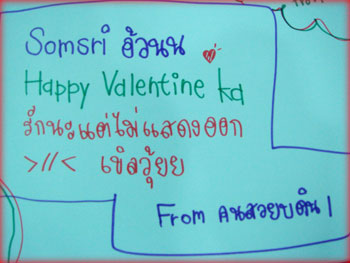 Somsri อ้วนน
Happy Valentine ka
รักนะแต่ไม่แสดงออก
>//< เขิลวุ้ยย
From คนสวยบดิน 1